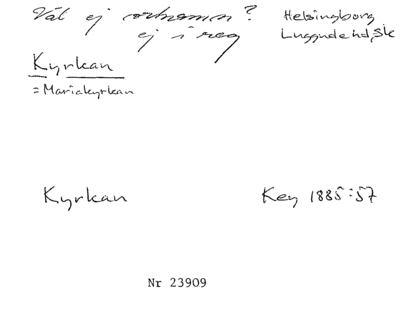 Väl ej ortnamn? Helsingborg
ej i reg Luggude hd, Sk
Kyrkan
= Mariakyrkan
Kyrkan Key 1885:57
Nr 23909